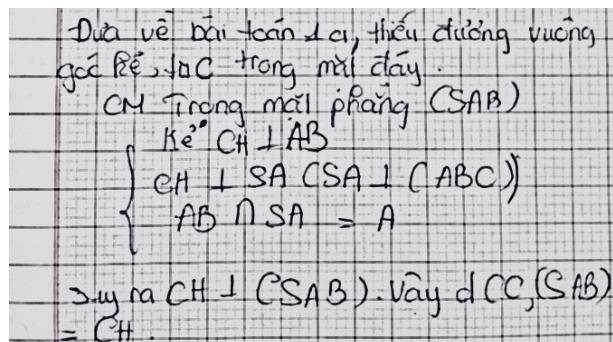 Đưa về bài toán 1 a, thiếu đường vuông
góc kẻ, từ C trong mặt đáy.
CM Trong mặt phẳng (SAB)
Kẻ CH ⊥ AB
CH ⊥ SA (SA ⊥ (ABC))
AB ∩ SA = A
Suy ra CH ⊥ (SAB). Vậy d(C,(SAB)
= CH.